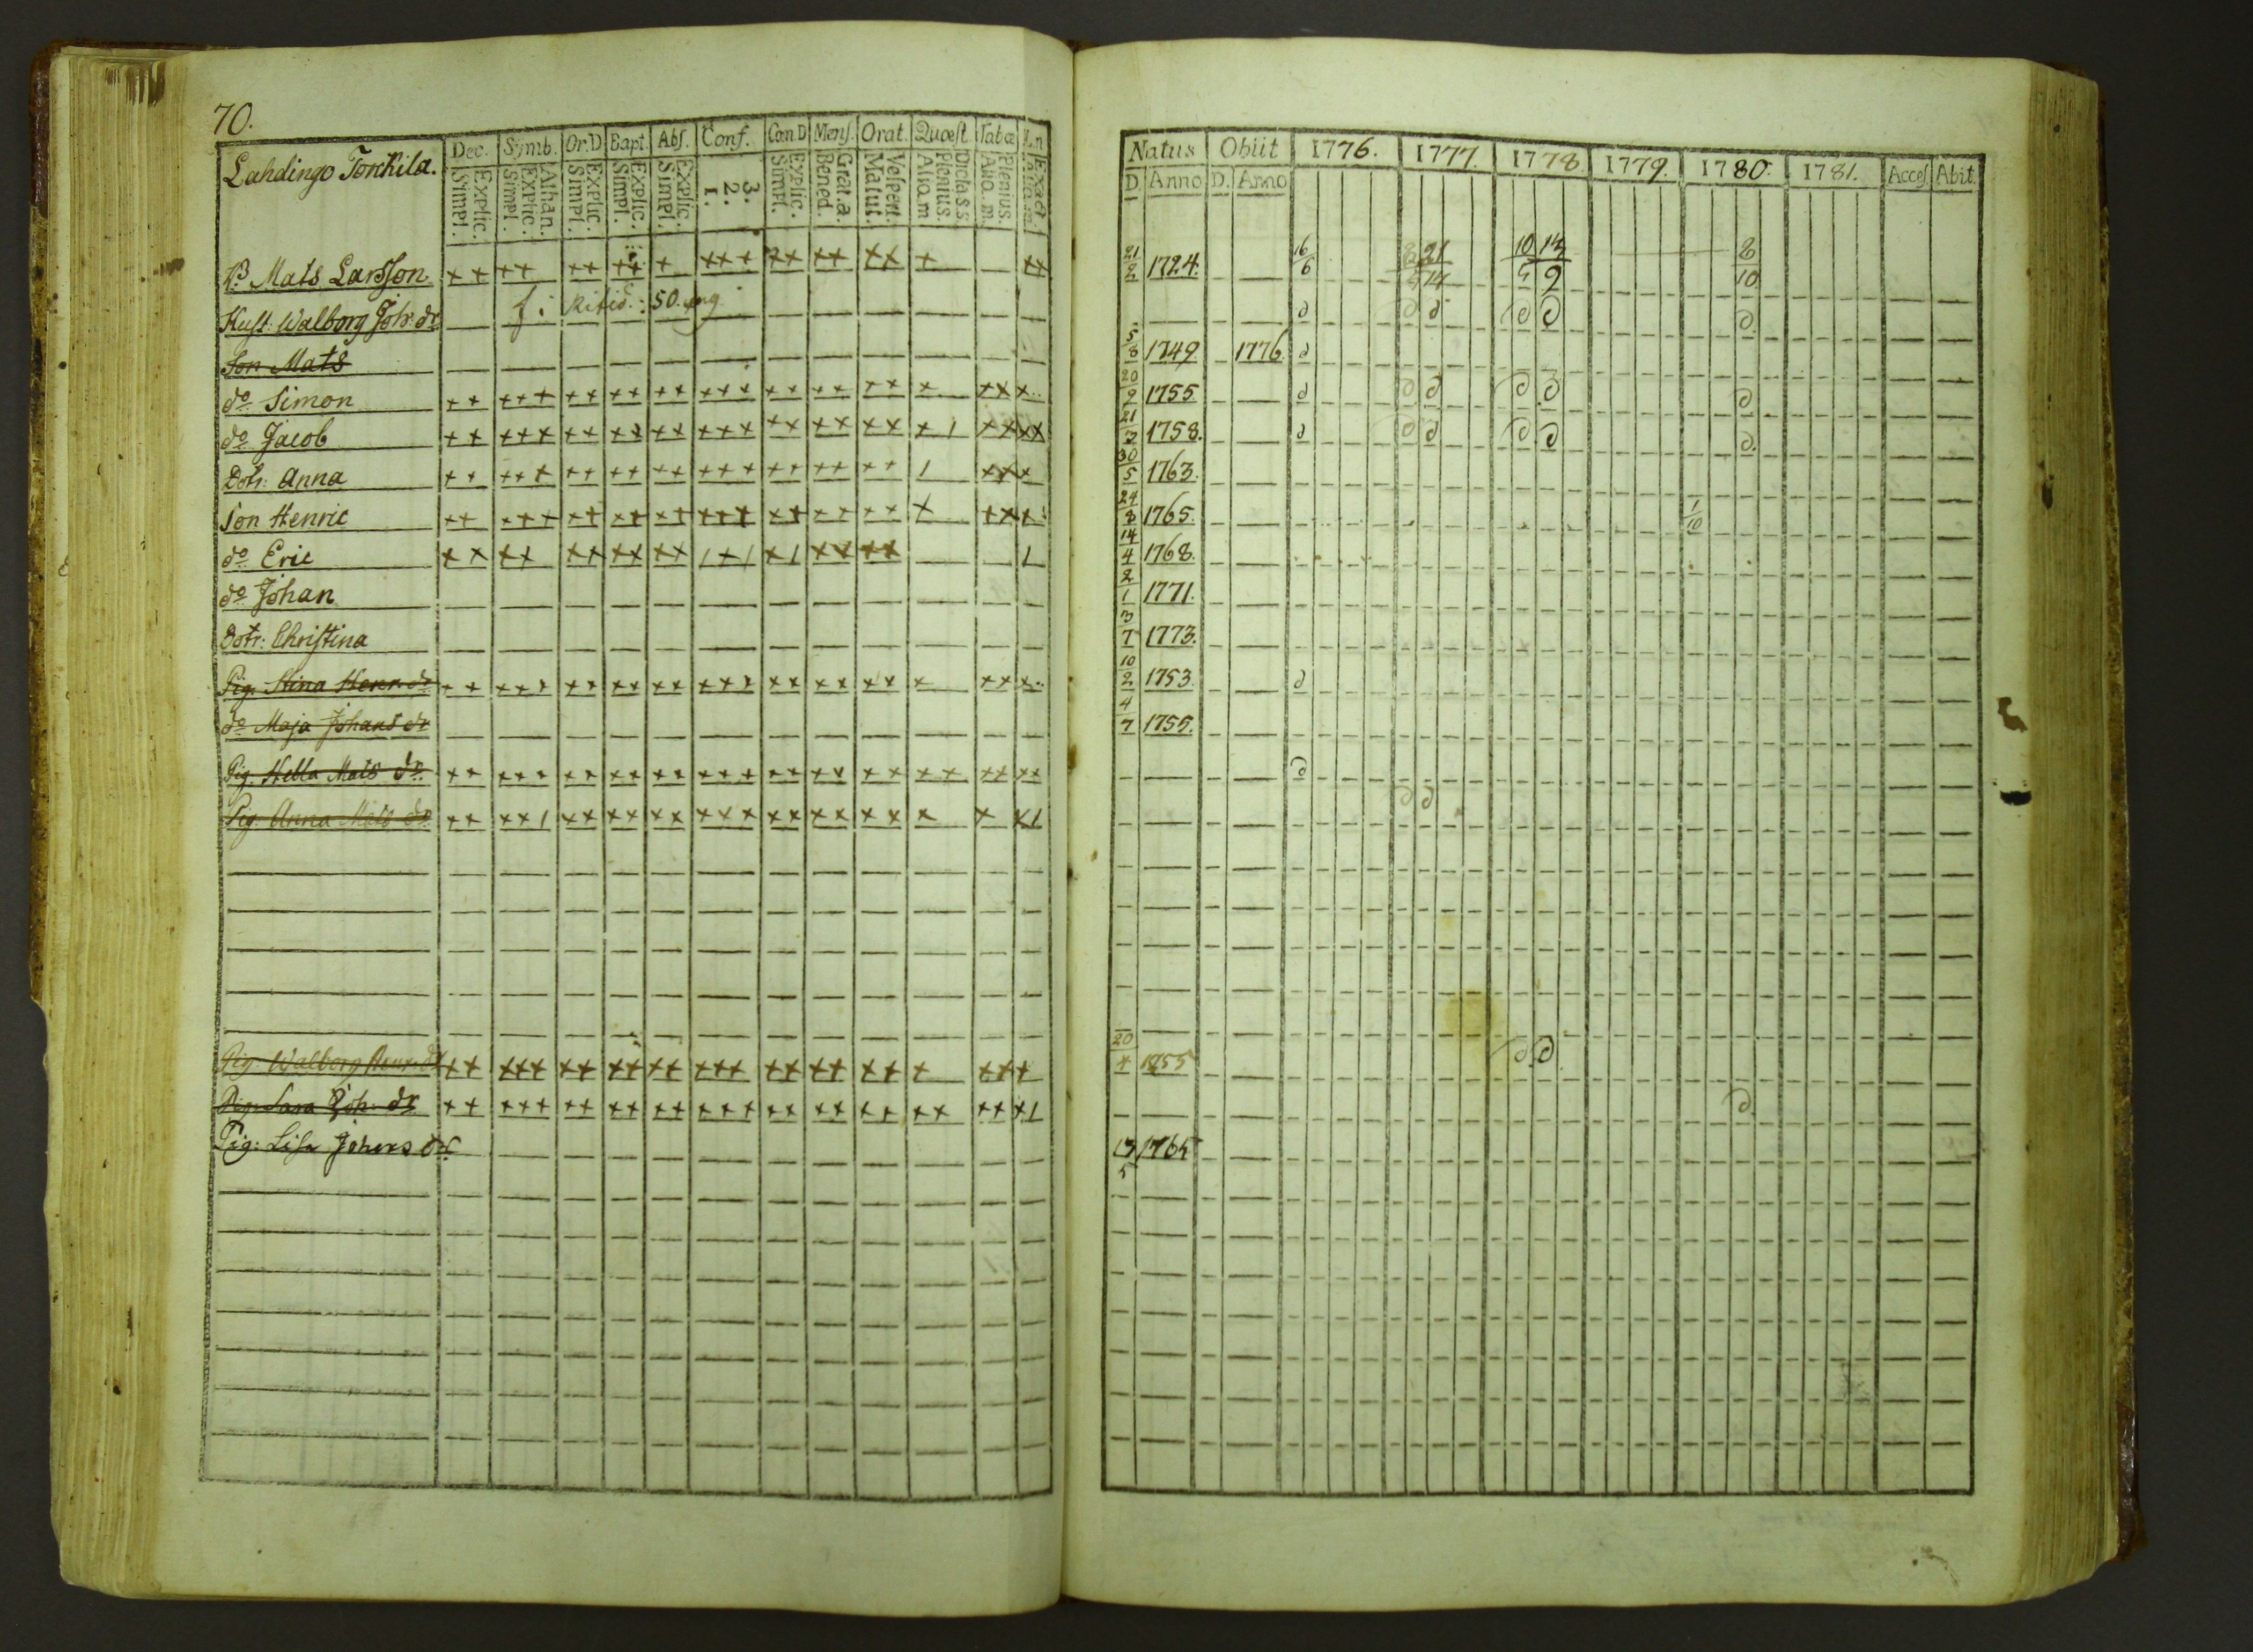 70.
Lahdingo Torkkila.
Dec. Symb. Or.D Bapt. Abs. Conf. Cœn D Mens. Orat. Quæst Tabœ
Explic. Simpl. Athan. Explic. Simpl. Explic. Simpl. Explic. Simpl. Explic. Simpl. 3. 2. 1. Explic. Simpl. Grat. a. Bened. Vespert. Matut. Dicta s.s Plenius. Aliq. m Plenius. Aliq. m.
Mats Larsson ++ ++ ++ ++ + +++ ++ ++ ++ + ++
Hust: Walborg Joh: dr
Son Mats
do Simon ++ +++ ++ ++ ++ +++ ++ ++ ++ + ++ +
do Jacob ++ +++ ++ ++ ++ +++ ++ ++ ++ + 1 ++ ++
Dotr: Anna ++ +++ ++ ++ ++ +++ ++ ++ ++ 1 ++ +
Son Henric ++ +++ ++ ++ ++ +++ ++ ++ ++ + ++ +
do Eric ++ ++ ++ ++ ++ 1+1 +1 ++ ++ 1
do Johan
Dotr: Christina
Pig. Stina Henr. dr ++ +++ ++ ++ ++ +++ ++ ++ ++ + ++ +
do Maja Johans dr
Pig. Hella Mats dr. ++ +++ ++ ++ ++ +++ ++ ++ ++ ++ ++ ++
Pig. Anna Mats dr ++ ++1 ++ ++ ++ +++ ++ ++ ++ + + +1
Pig. Walborg Henr. dr ++ +++ ++ ++ ++ +++ ++ ++ ++ + ++ +
Pig. Sara Joh. dr ++ +++ ++ ++ ++ +++ ++ ++ ++ ++ ++ +1
Pig: Lisa Johans dr
Natus Obiit 1776. 1777. 1778 1779. 1780. 1781. Acces Abit.
D. Anno D. Anno
21/2 1724. 16/6 10/5 8/10
5/8 1749 1776.
20/9 1755
21/ 1758.
30/5 1763.
24/8 1765. 1/10
14/4 1768.
2/1 1771.
3/7 1773.
10/2 1753.
4/7 1755.
20/4 1755
13/5 1765